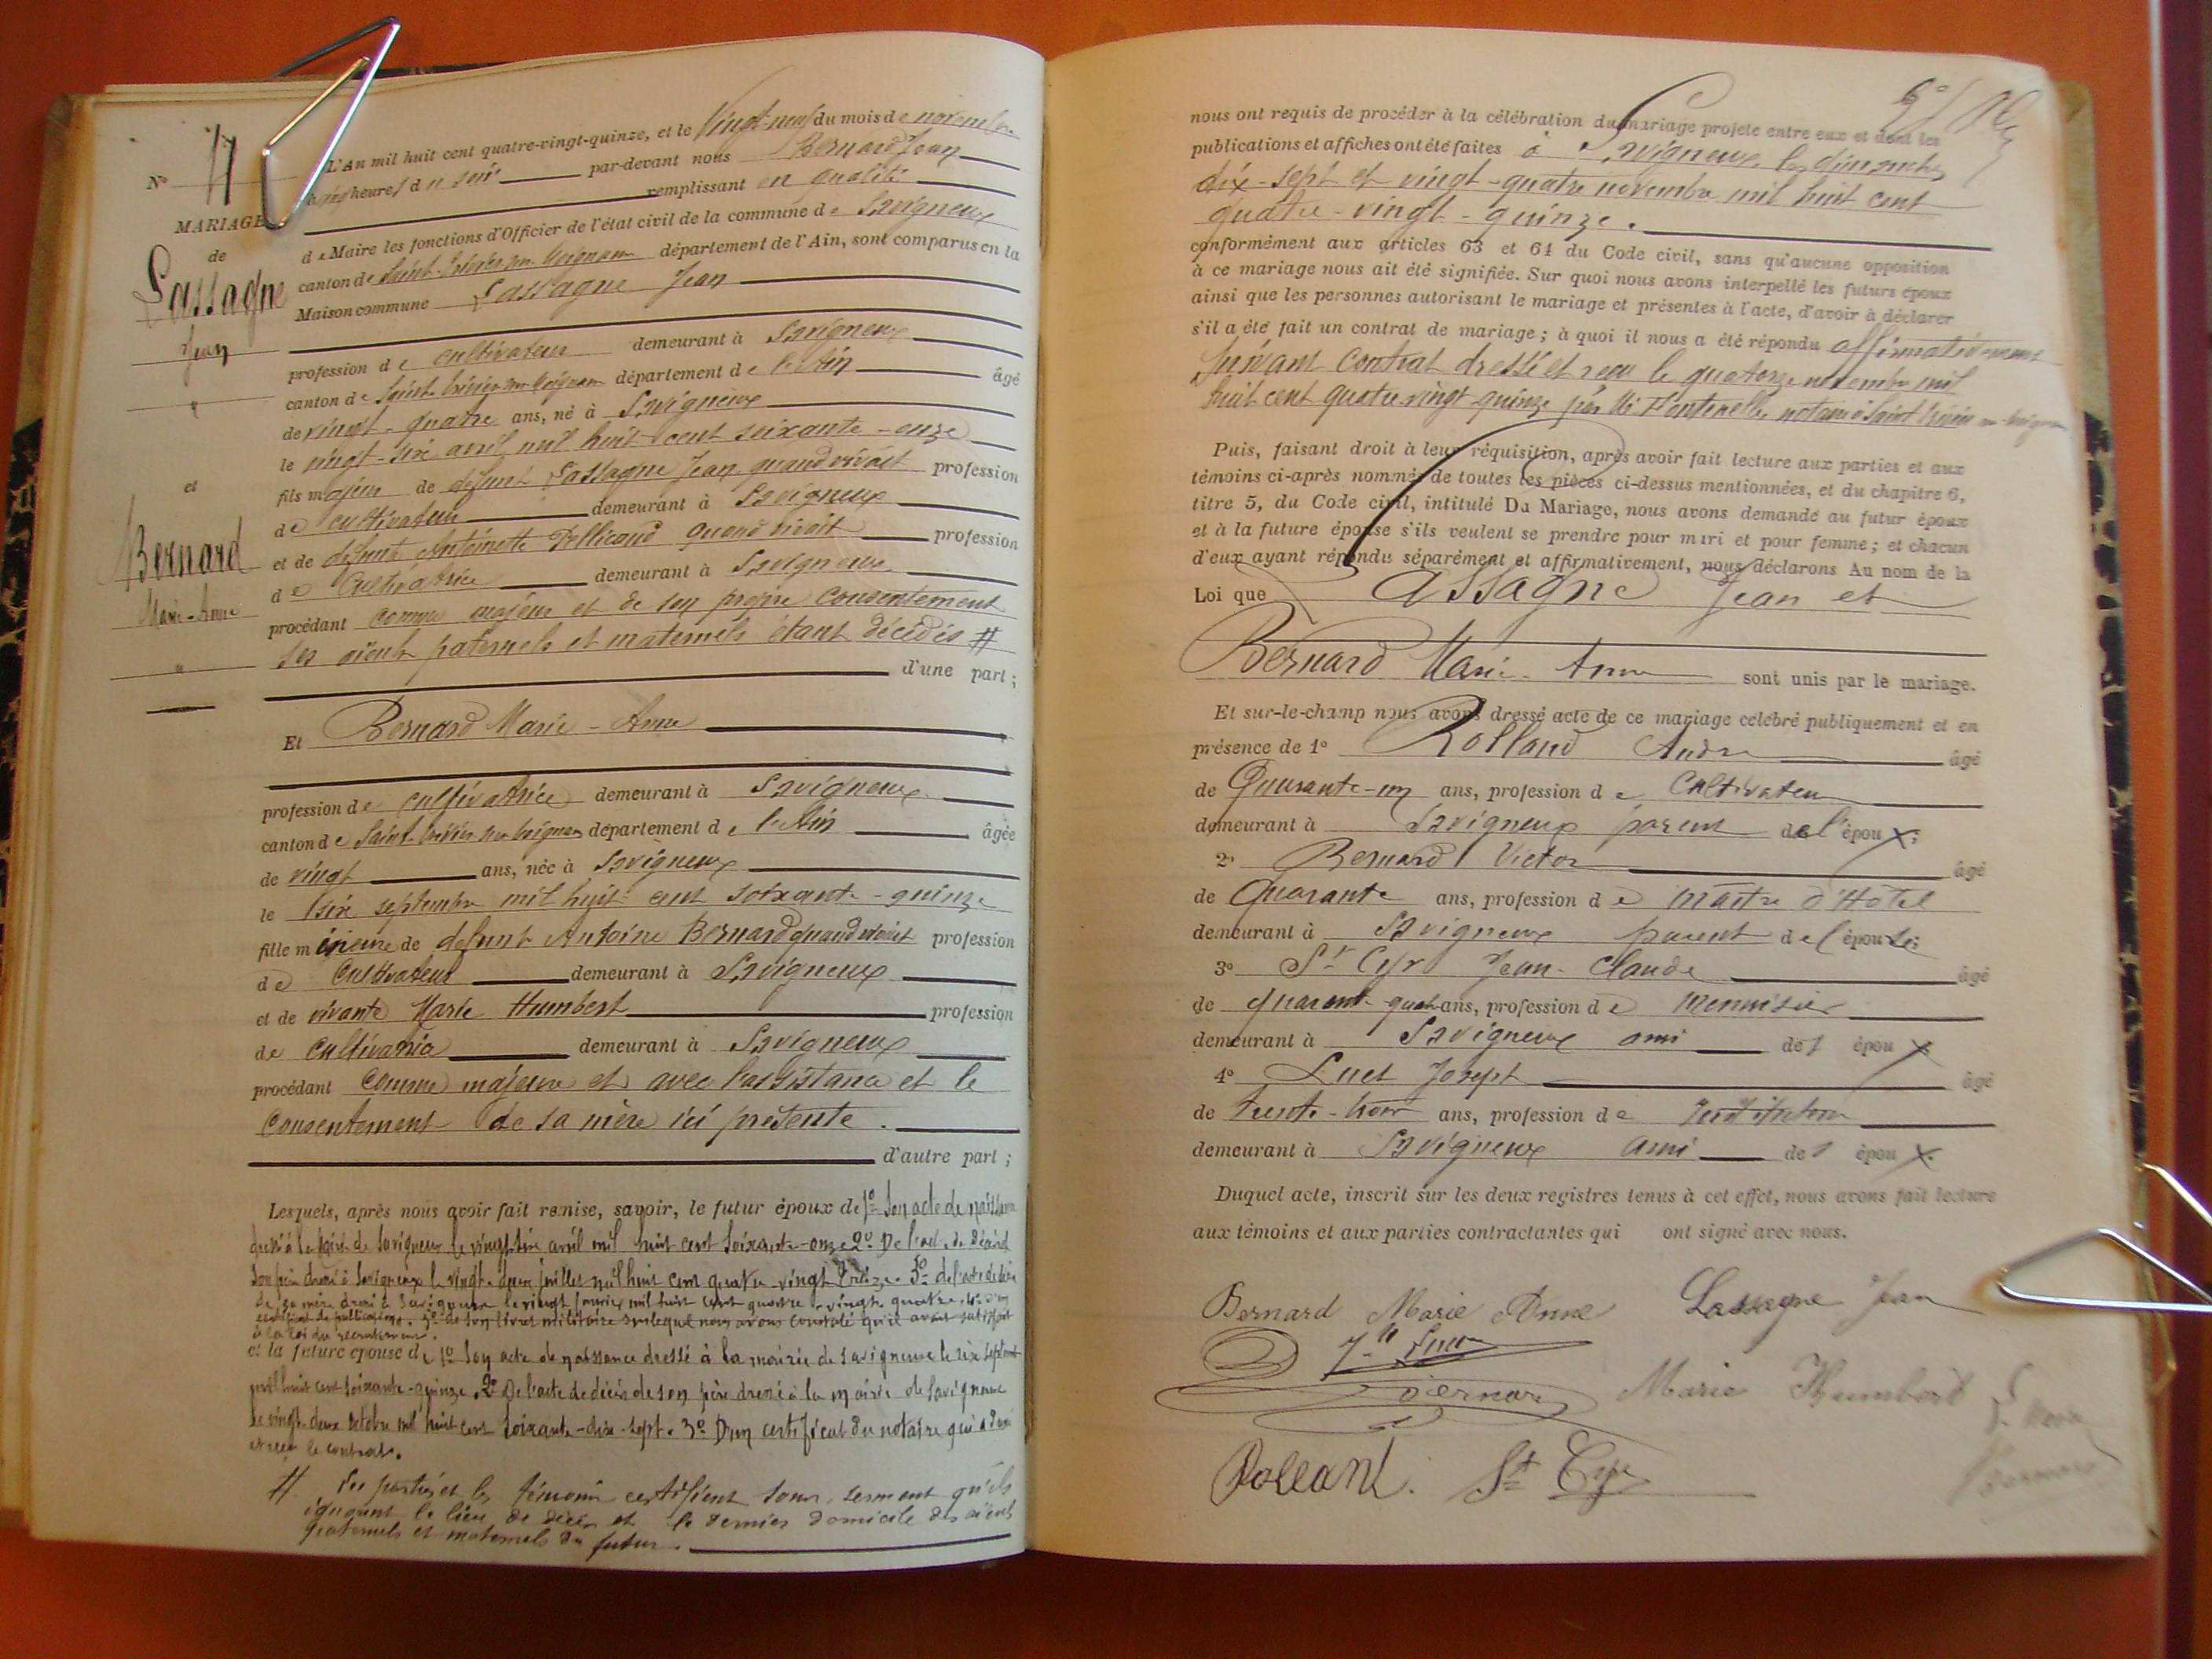 N° 
MARIAGE
de
Lassagne
Jean
et
Bernard
Marie-Anne
L'An mil huit cent quatre-vingt-quinze, et le vingt-neuf du mois de novembre
heures du soir par-devant nous Bernard Jean
remplissant en qualité
de Maire les fonctions d'Officier de l'état civil de la commune de Savigneux
canton de Saint-Trivier-sur-Moignans département de l'Ain, sont comparus en la
Maison commune Lassagne Jean
profession de cultivateur demeurant à Savigneux
canton de Saint-Trivier-sur-Moignans département de l'Ain âgé
de vingt-quatre ans, né à Savigneux
le vingt-six avril mil huit cent soixante-onze
fils majeur de défunt Lassagne Jean quand vivait profession
de cultivateur demeurant à Savigneux
et de défunte Antoinette Pellicaud quand vivait profession
de Cultivatrice demeurant à Savigneux
procédant comme majeur et de son propre consentement
ses aïeuls paternels et maternels étant décédés #
d'une part ;
Et Bernard Marie-Anne
profession de cultivatrice demeurant à Savigneux
canton de Saint-Trivier-sur-Moignans département de l'Ain âgée
de vingt ans, née à Savigneux
le six septembre mil huit cent soixante-quinze
fille mineure de défunt Antoine Bernard quand vivait profession
de Cultivateur demeurant à Savigneux
et de vivante Marie Humbert profession
de Cultivatrice demeurant à Savigneux
procédant comme majeure et avec l'assistance et le
consentement de sa mère ici présente.
d'autre part ;
Lesquels, après nous avoir fait remise, savoir, le futur époux de 1° Son acte de naissance
dressé à la mairie de Savigneux le vingt-six avril mil huit cent soixante-onze 2° De l'acte de décès de
son père dressé à Savigneux le vingt-deux juillet mil huit cent quatre-vingt treize. 3° de l'acte de décès
de sa mère dressé à Savigneux le vingt février mil huit cent quatre-vingt quatre. 4° d'un
certificat de publication. 5° de son livret militaire sur lequel nous avons constaté qu'il avait satisfait
à la loi du recrutement.
et la future épouse de 1° Son acte de naissance dressé à la mairie de Savigneux le six septembre
mil huit cent soixante-quinze. 2° De l'acte de décès de son père dressé à la mairie de Savigneux
le vingt-deux octobre mil huit cent soixante-dix-sept. 3° D'un certificat du notaire qui a dressé
et reçu le contrat.
# Les parties et les témoins certifient sous serment qu'ils
ignorent le lieu de décès et le dernier domicile des aïeuls
paternels et maternels du futur.
nous ont requis de procéder à la célébration du mariage projeté entre eux et dont les
publications et affiches ont été faites à Savigneux les dimanches
dix-sept et vingt-quatre novembre mil huit cent
quatre-vingt-quinze.
conformément aux articles 63 et 64 du Code civil, sans qu'aucune opposition
à ce mariage nous ait été signifiée. Sur quoi nous avons interpellé les futurs époux
ainsi que les personnes autorisant le mariage et présentes à l'acte, d'avoir à déclarer
s'il a été fait un contrat de mariage ; à quoi il nous a été répondu affirmativement
suivant contrat dressé et reçu le quatorze novembre mil
huit cent quatre vingt-quinze par Me Fontenelle notaire à Saint Trivier-sur-Moignans
Puis, faisant droit à leur réquisition, après avoir fait lecture aux parties et aux
témoins ci-après nommés de toutes les pièces ci-dessus mentionnées, et du chapitre 6,
titre 5, du Code civil, intitulé Du Mariage, nous avons demandé au futur époux
et à la future épouse s'ils veulent se prendre pour mari et pour femme ; et chacun
d'eux ayant répondu séparément et affirmativement, nous déclarons Au nom de la
Loi que Lassagne Jean et
Bernard Marie-Anne sont unis par le mariage.
Et sur-le-champ nous avons dressé acte de ce mariage célébré publiquement et en
présence de 1° Rolland André âgé
de Quarante-un ans, profession de Cultivateur
demeurant à Savigneux parent de l'époux ;
2° Bernard Victor âgé
de Quarante ans, profession de maître d'Hôtel
demeurant à Savigneux parent de l'épouse ;
3° St Cyr Jean-Claude âgé
de quarante-quatre ans, profession de menuisier
demeurant à Savigneux ami des époux
4° Luct Joseph âgé
de trente-trois ans, profession de Instituteur
demeurant à Savigneux ami des époux.
Duquel acte, inscrit sur les deux registres tenus à cet effet, nous avons fait lecture
aux témoins et aux parties contractantes qui ont signé avec nous.
Bernard Marie Anne Lassagne Jean
Bernard Marie Humbert
Rolland. St Cyr